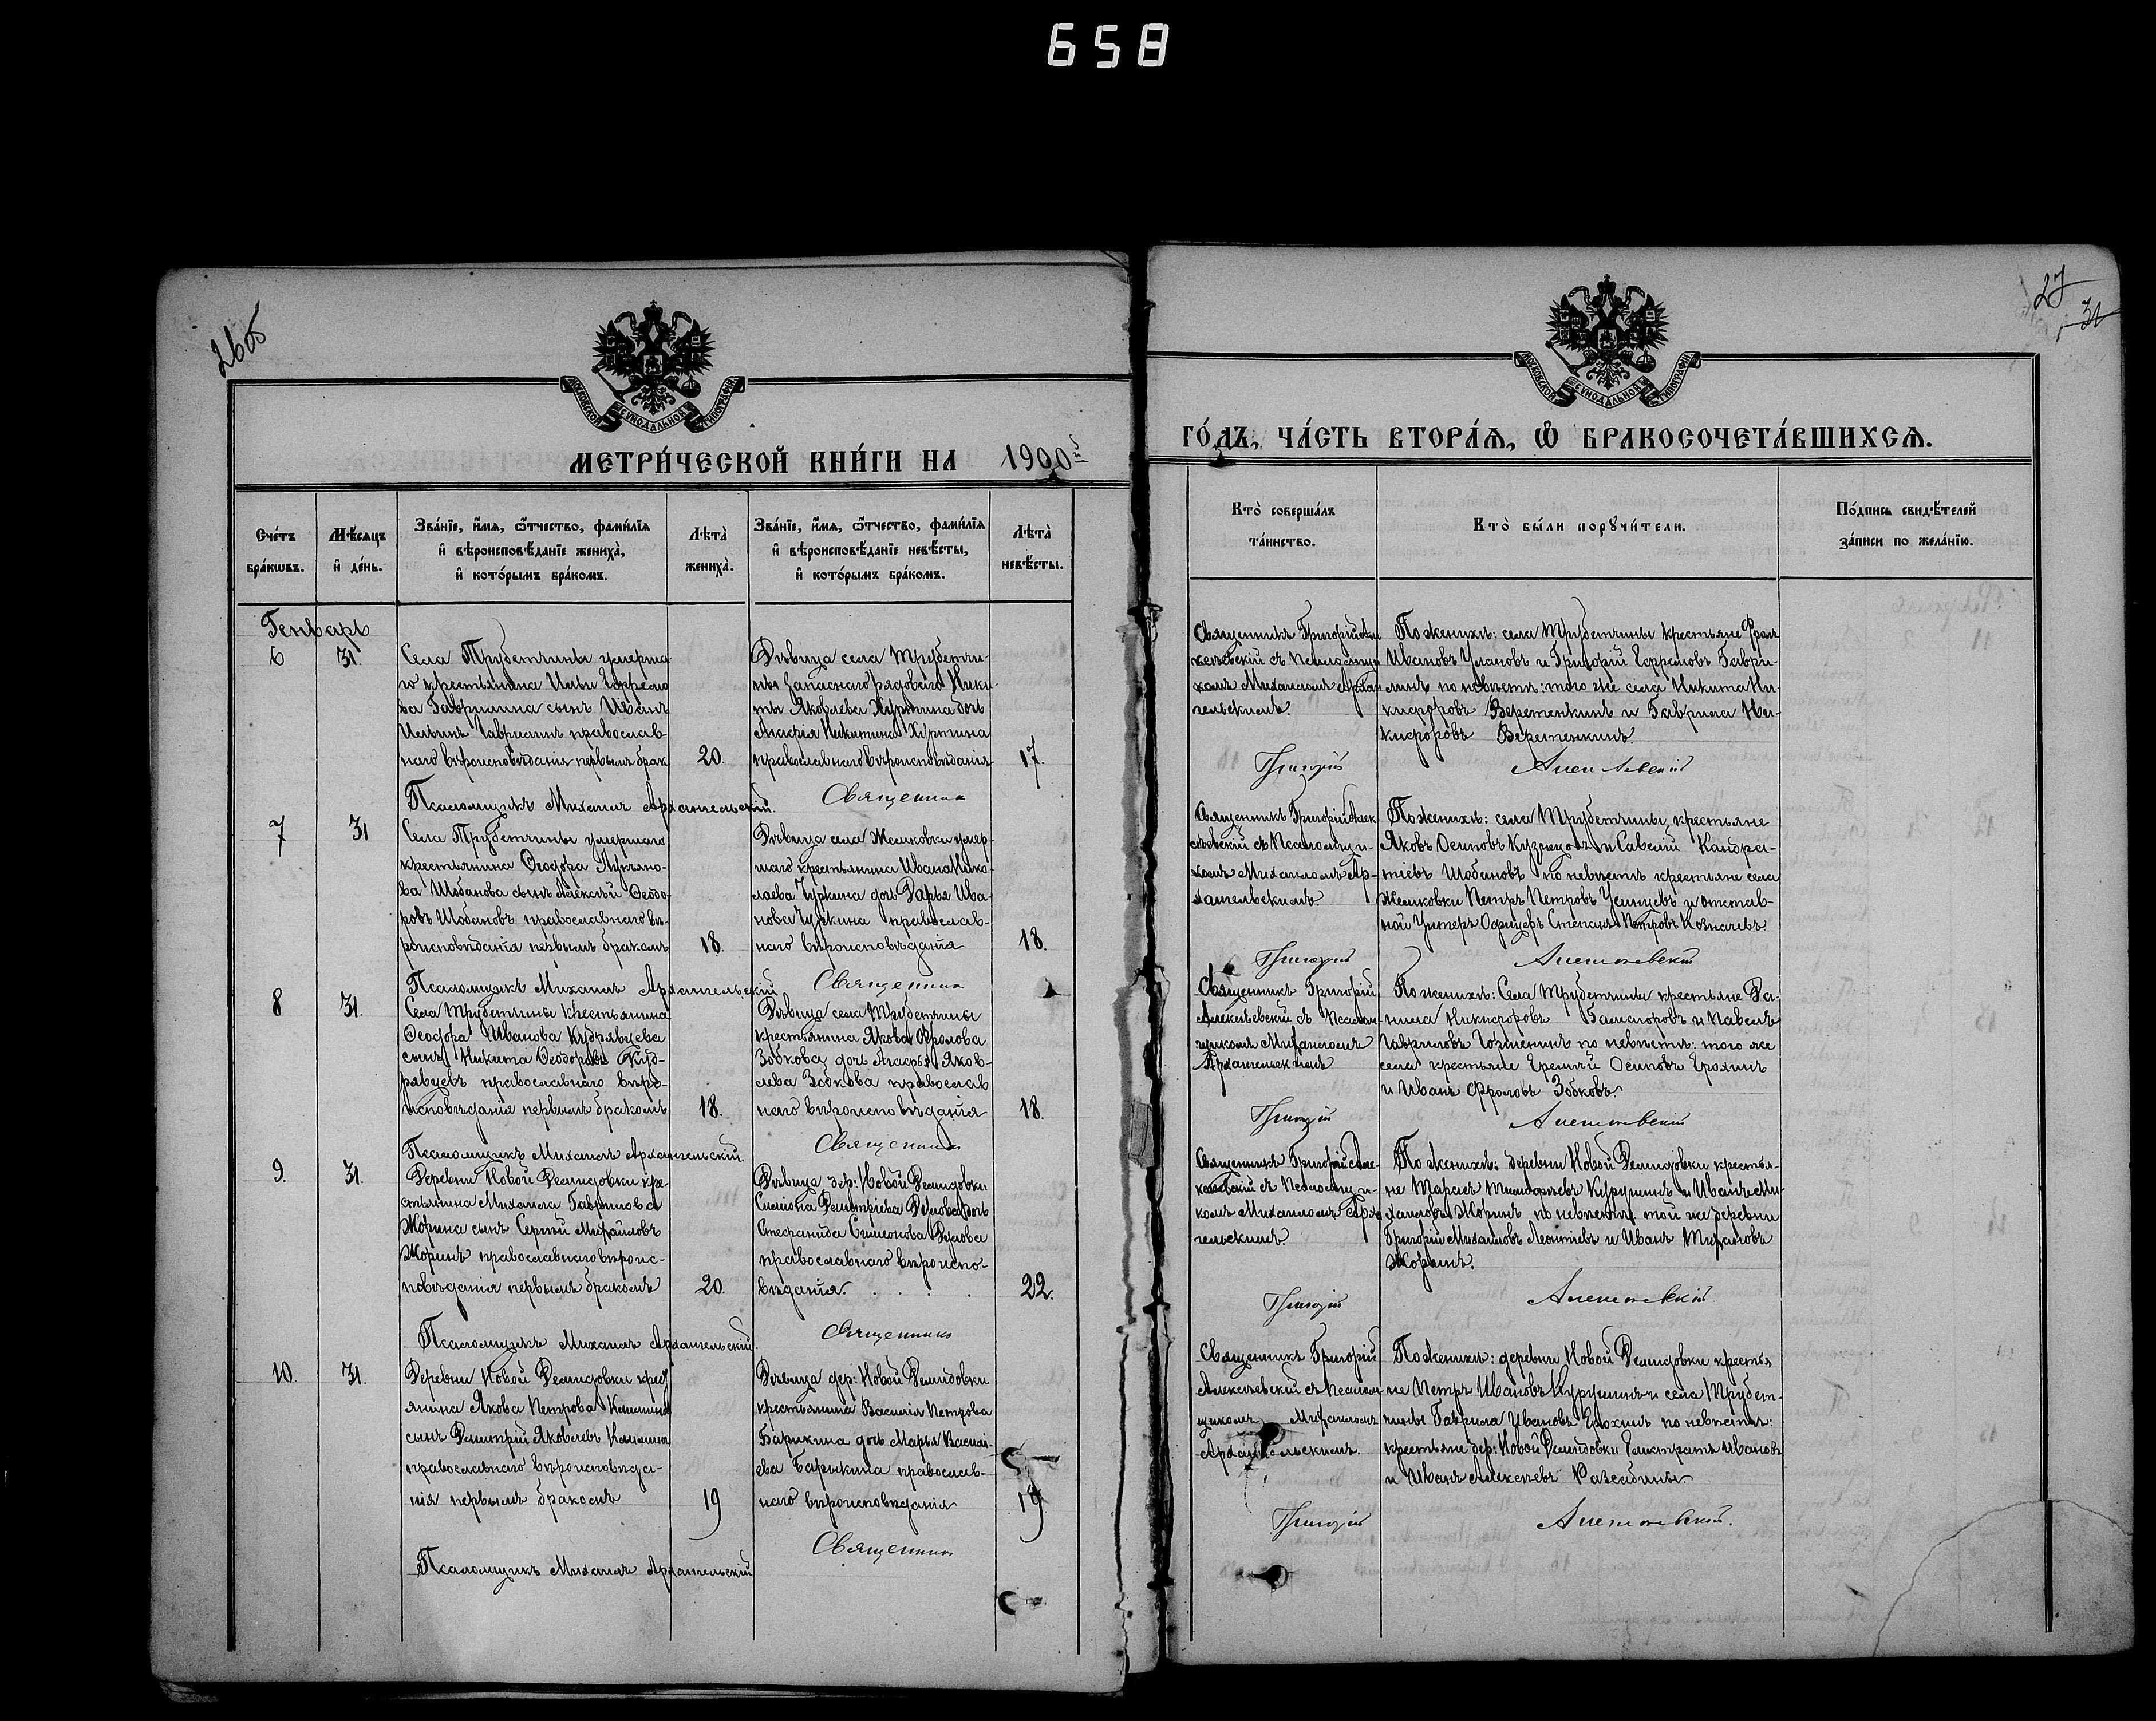 658
26об
27
31
МОСКОВСКОЙ СѴНОДАЛЬНОЙ ТИПОГРАФІИ
МОСКОВСКОЙ СѴНОДАЛЬНОЙ ТИПОГРАФІИ
МЕТРИ́ЧЕСКОЙ КНИ́ГИ НА 1900й
ГО́ДЪ, ЧА́СТЬ ВТОРА́Ѧ, Ѡ҆ БРАКОСОЧЕТА́ВШИХСѦ.
Сче́тъ
бра́кѡвъ.
Мѣ́сѧцъ
и҆ де́нь.
Зва́нїе, и҆́мѧ, ѻ҆́тчество, фами́лїѧ
и҆ вѣроисповѣ́данїе жениха̀,
и҆ кото́рымъ бра́комъ.
Лѣ́та̀
жениха̀.
Зва́нїе, и҆́мѧ, ѻ҆́тчество, фами́лїѧ
и҆ вѣроисповѣ́данїе невѣ́сты,
и҆ кото́рымъ бра́комъ.
Лѣ́та̀
невѣ́сты.
Кто̀ соверша́лъ
та́инство.
Кто̀ бы́ли порꙋчи́тели.
По́дпись свидѣ́телей
за́писи по жела́нїю.
Генварь
6
31.
Села Трубетчины умерша-
го крестьянина Ильи Ефремо
ва Гаврилина сынъ Иванъ
Ильинъ Гаврилинъ православ-
наго вѣроисповѣданія первымъ брак
20.
Дѣвица села Трубетчи-
ны запаснаго рядоваго Ники-
ты Яковлева дочь
Никитина
православнаго вѣроисповѣданія
17.
Священникъ Григорій Але-
ксѣевскій съ Псаломщи
комъ Михаиломъ Архан
гельскимъ.
По женихѣ: села Трубетчины крестьяне Фролъ
Ивановъ Улановъ и Григорій Ефремовъ Гаври-
линъ по невѣстѣ: того же села Никита Ни-
кифоровъ Веретенкинъ и Гаврила Ни-
кифоровъ Веретенкинъ.
Псаломщикъ Михаилъ Архангельскій.
Священникъ
Григорій
Алексѣевскій
7
31
Села Трубетчины умершаго
крестьянина Ѳеодора Лукьяно-
ва Шобанова сынъ Алексѣй Ѳеодо-
ровъ Шобановъ православнаго вѣ-
роисповѣданія первымъ бракомъ
18.
Дѣвица села Желковки умер-
шаго крестьянина Ивана Нико-
лаева Чуркина дочь Дарья Ива-
нова Чуркина православ-
наго вѣроисповѣданія
18.
Священникъ Григорій Алек-
сѣевскій съ Псаломщи-
комъ Михаиломъ Ар-
хангельскимъ
По женихѣ: села Трубетчины крестьяне
Яковъ Осиповъ Кузнецовъ и Савелій Кандра-
тіевъ Шобановъ по невѣстѣ крестьяне села
Желковки Петръ Петровъ и отстав-
ной Унтеръ Офицеръ Степанъ Петровъ Козначевъ
Псаломщикъ Михаилъ Архангельскій
Священникъ
Григорій
Алексѣевскій
8
31.
Села Трубетчины крестьянина
Ѳеодора Иванова Кудрявцева
сынъ Никита Ѳеодоровъ Куд-
рявцевъ православнаго вѣро-
исповѣданія первымъ бракомъ
18.
Дѣвица села Трубетчины
крестьянина Якова Фролова
Зобкова дочь Агафья Яков-
лева Зобкова православ
наго вѣроисповѣданія
18.
Священникъ Григорій
Алексѣевскій съ Псалом-
щикомъ Михаиломъ
Архангельскимъ
По женихѣ: Села Трубетчины крестьяне Да-
нила Никифоровъ и Павелъ
Гавриловъ по невѣстѣ: того же
села крестьяне Еремѣй Осиповъ Ерохинъ
и Иванъ Фроловъ Зобковъ.
Псаломщикъ Михаилъ Архангельскій
Священникъ
Григорій
Алексѣевскій
9.
31.
Деревни Новой Демидовки кре-
стьянина Михаила Гаврилова
Жорина сынъ Сергѣй Михайловъ
Жоринъ православнаго вѣроис-
повѣданія первымъ бракомъ
20.
Дѣвица дер: Новой Демидовки
Симеона Димитріева дочь
Стефанида Симеонова
православнаго вѣроиспо-
вѣданія.
22.
Священникъ Григорій Але-
ксѣевскій съ Псаломщи-
комъ Михаиломъ Арха
гельскимъ.
По женихѣ: деревни Новой Демидовки крестья-
не Тарасъ Тимофеевъ Курушинъ и Иванъ Ми-
хаиловъ Жоринъ по невѣстѣ той же деревни
Григорій Михаиловъ Леонтіевъ и Иванъ Михайловъ
Жоринъ.
Псаломщикъ Михаилъ Архангельскій.
Священникъ
Григорій
Алексѣевскій
10.
31.
Деревни Новой Демидовки крест
янина Якова Петрова
сынъ Димитрій Яковлевъ
православнаго вѣроисповѣда-
нія первымъ бракомъ
19
Дѣвица дер: Новой Демидовки
крестьянина Василія Петрова
Барыкина дочь Марья Васил-
ева Барыкина православ-
наго вѣроисповѣданія
19.
Священникъ Григорій
Алексѣевскій съ Псалом-
щикомъ Михаиломъ
Архангельскимъ.
По женихѣ: деревни Новой Демидовки крестья
не Петръ Ивановъ Курушинъ и села Трубет-
чины Гаврила Ивановъ Ерохинъ по невѣстѣ:
крестьяне дер: Новой Демидовки Ивановъ
и Иванъ Алексѣевъ
Псаломщикъ Михаилъ Архангельскій
Священникъ
Григорій
Алексѣевскій.